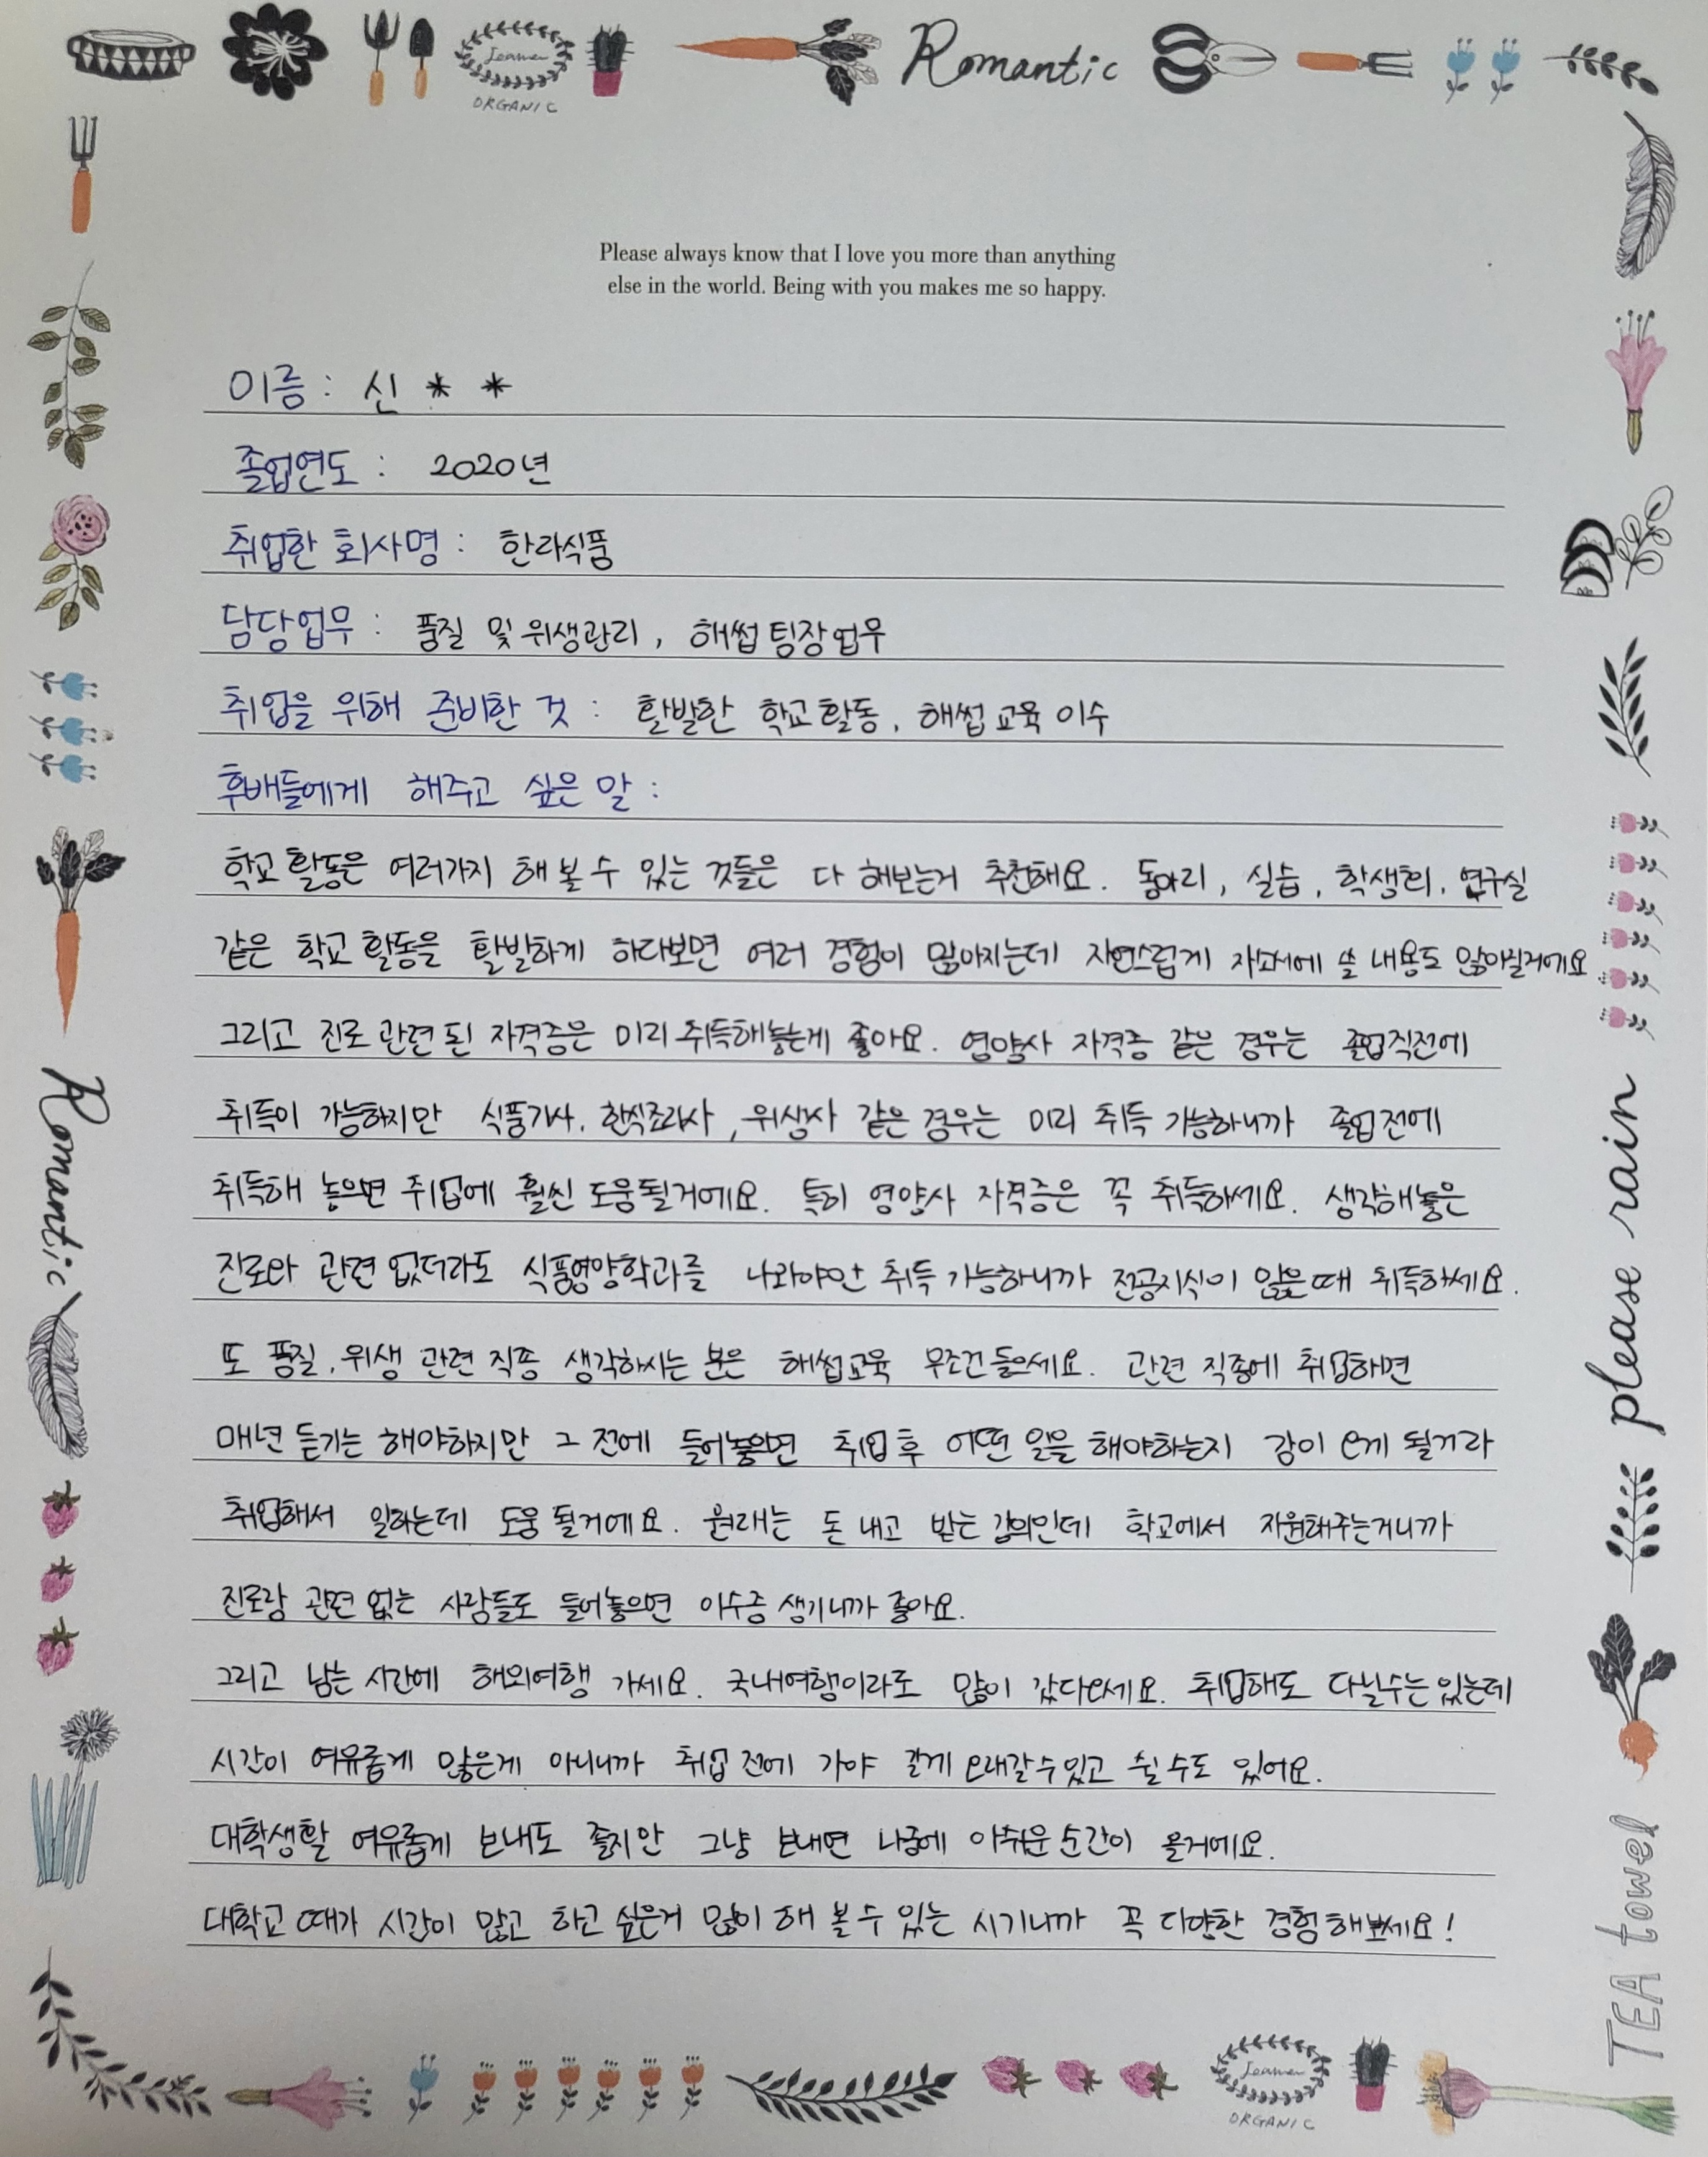 Romantic
ORGANIC
Please always know that I love you more than anything
else in the world. Being with you makes me so happy.
이름 : 신 * *
졸업연도 : 2020년
취업한 회사명 : 한라식품
담당업무 : 품질 및 위생관리, 해썹팀장업무
취업을 위해 준비한 것 : 활발한 학교활동, 해썹교육 이수
후배들에게 해주고 싶은 말 :
학교활동은 여러가지 해 볼 수 있는 것들은 다 해보는거 추천해요. 동아리, 실습, 학생회, 연구실
같은 학교활동을 활발하게 하다보면 여러 경험이 많아지는데 자연스럽게 자소서에 쓸 내용도 많아질거에요
그리고 진로 관련된 자격증은 미리 취득해놓는게 좋아요. 영양사 자격증 같은 경우는 졸업직전에
취득이 가능하지만 식품기사, 한식조리사, 위생사 같은 경우는 미리 취득 가능하니까 졸업전에
취득해 놓으면 취업에 훨씬 도움될거에요. 특히 영양사 자격증은 꼭 취득하세요. 생각해놓은
진로와 관련 없더라도 식품영양학과를 나와야만 취득 가능하니까 전공지식이 많을때 취득하세요.
또 품질, 위생 관련 직종 생각하시는 분은 해썹교육 무조건 들으세요. 관련 직종에 취업하면
매년 듣기는 해야하지만 그 전에 들어놓으면 취업 후 어떤 일을 해야하는지 감이 오게 될거라
취업해서 일하는데 도움 될거에요. 원래는 돈 내고 받는 강의인데 학교에서 지원해주는거니까
진로랑 관련 없는 사람들도 들어놓으면 이수증 생기니까 좋아요.
그리고 남는 시간에 해외여행 가세요. 국내여행이라도 많이 갔다오세요. 취업해도 다닐수는있는데
시간이 여유롭게 많은게 아니니까 취업 전에 가야 길게 오래갈수있고 쉴 수도 있어요.
대학생활 여유롭게 보내도 좋지만 그냥 보내면 나중에 아쉬운 순간이 올거에요.
대학교 때가 시간이 많고 하고 싶은거 많이 해 볼 수 있는 시기니까 꼭 다양한 경험해보세요!
Romantic
please rain
TEA towel
ORGANIC